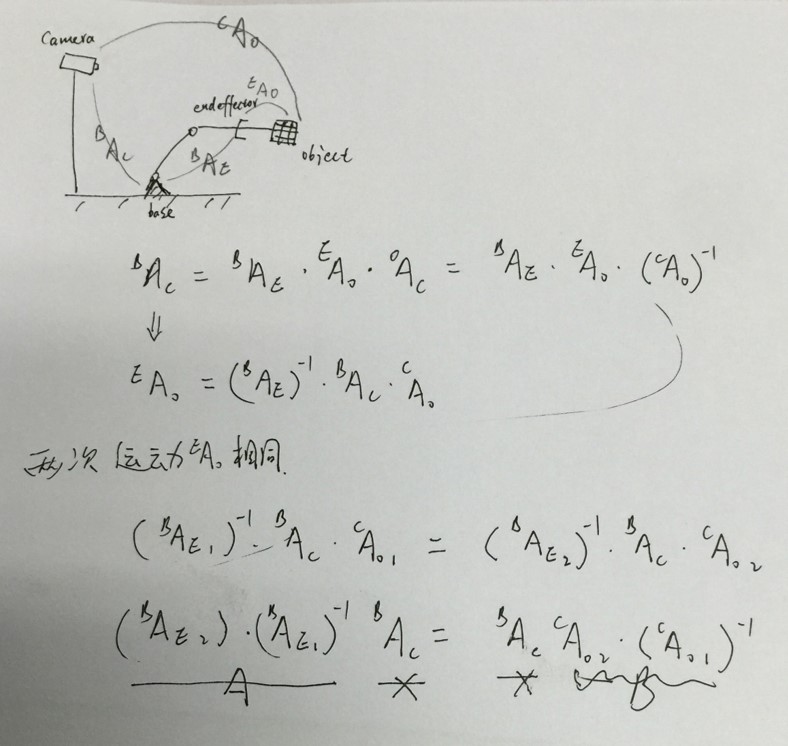 Camera
ᶜA₀
ᴱA₀
endeffector
ᴮA꜀
ᴮA_E
object
base
ᴮA_C = ᴮA_E · ᴱA₀ · ⁰A_C = ᴮA_E · ᴱA₀ · (ᶜA₀)⁻¹
⇓
ᴱA₀ = (ᴮA_E)⁻¹ · ᴮA_C · ᶜA₀
两次运动ᴱA₀相同.
(ᴮA_E₁)⁻¹ · ᴮA_C · ᶜA₀₁ = (ᴮA_E₂)⁻¹ · ᴮA_C · ᶜA₀₂
(ᴮA_E₂) · (ᴮA_E₁)⁻¹ ᴮA_C = ᴮA_C ᶜA₀₂ · (ᶜA₀₁)⁻¹
A X X B